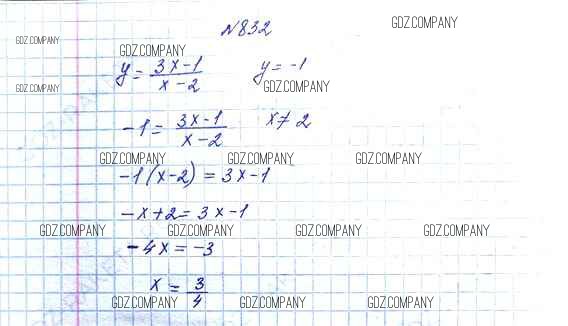 №832
GDZ.COMPANY GDZ.COMPANY
GDZ.COMPANY
y = (3x-1)/(x-2) y = -1
GDZ.COMPANY GDZ.COMPANY
-1 = (3x-1)/(x-2) x ≠ 2
GDZ.COMPANY GDZ.COMPANY GDZ.COMPANY
-1(x-2) = 3x-1
-x+2 = 3x-1
GDZ.COMPANY GDZ.COMPANY GDZ.COMPANY GDZ.COMPANY
-4x = -3
x = 3/4
GDZ.COMPANY GDZ.COMPANY GDZ.COMPANY